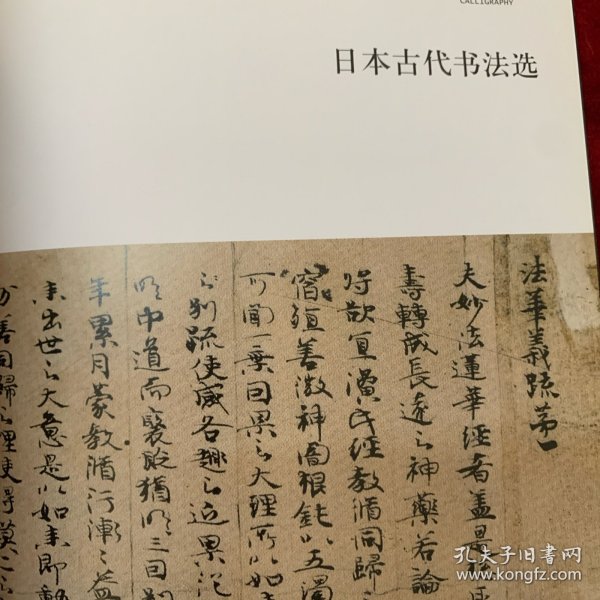 CALLIGRAPHY
日本古代书法选
法華義疏第一
夫妙法蓮華經者盖是
壽轉成長遠之神藥若論
将欲宜演此經教脩同歸之
宿殖善微神闇根鈍以五濁
可聞一乗因果之大理所以如
之別疏使感各趣之近果従
明中道而褒貶猶明三因別
年累月蒙教脩行漸〻益
来出世之大意是以如来即動
善同歸之理使得莫二之
孔夫子旧书网
www.kongfz.com